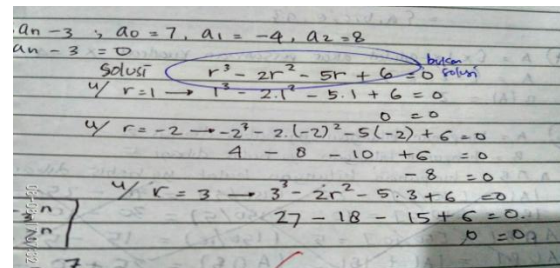 an-3 ; a0 = 7, a1 = -4, a2 = 8
an-3 = 0
solusi r³ - 2r² - 5r + 6 = 0 bukan solusi
u/ r=1 → 1³ - 2.1² - 5.1 + 6 = 0
0 = 0
u/ r = -2 → -2³ - 2.(-2)² - 5(-2) + 6 = 0
4 - 8 - 10 + 6 = 0
-8 = 0
u/ r = 3 → 3³ - 2r² - 5.3 + 6 = 0
27 - 18 - 15 + 6 = 0.
n
n
0 = 0
7